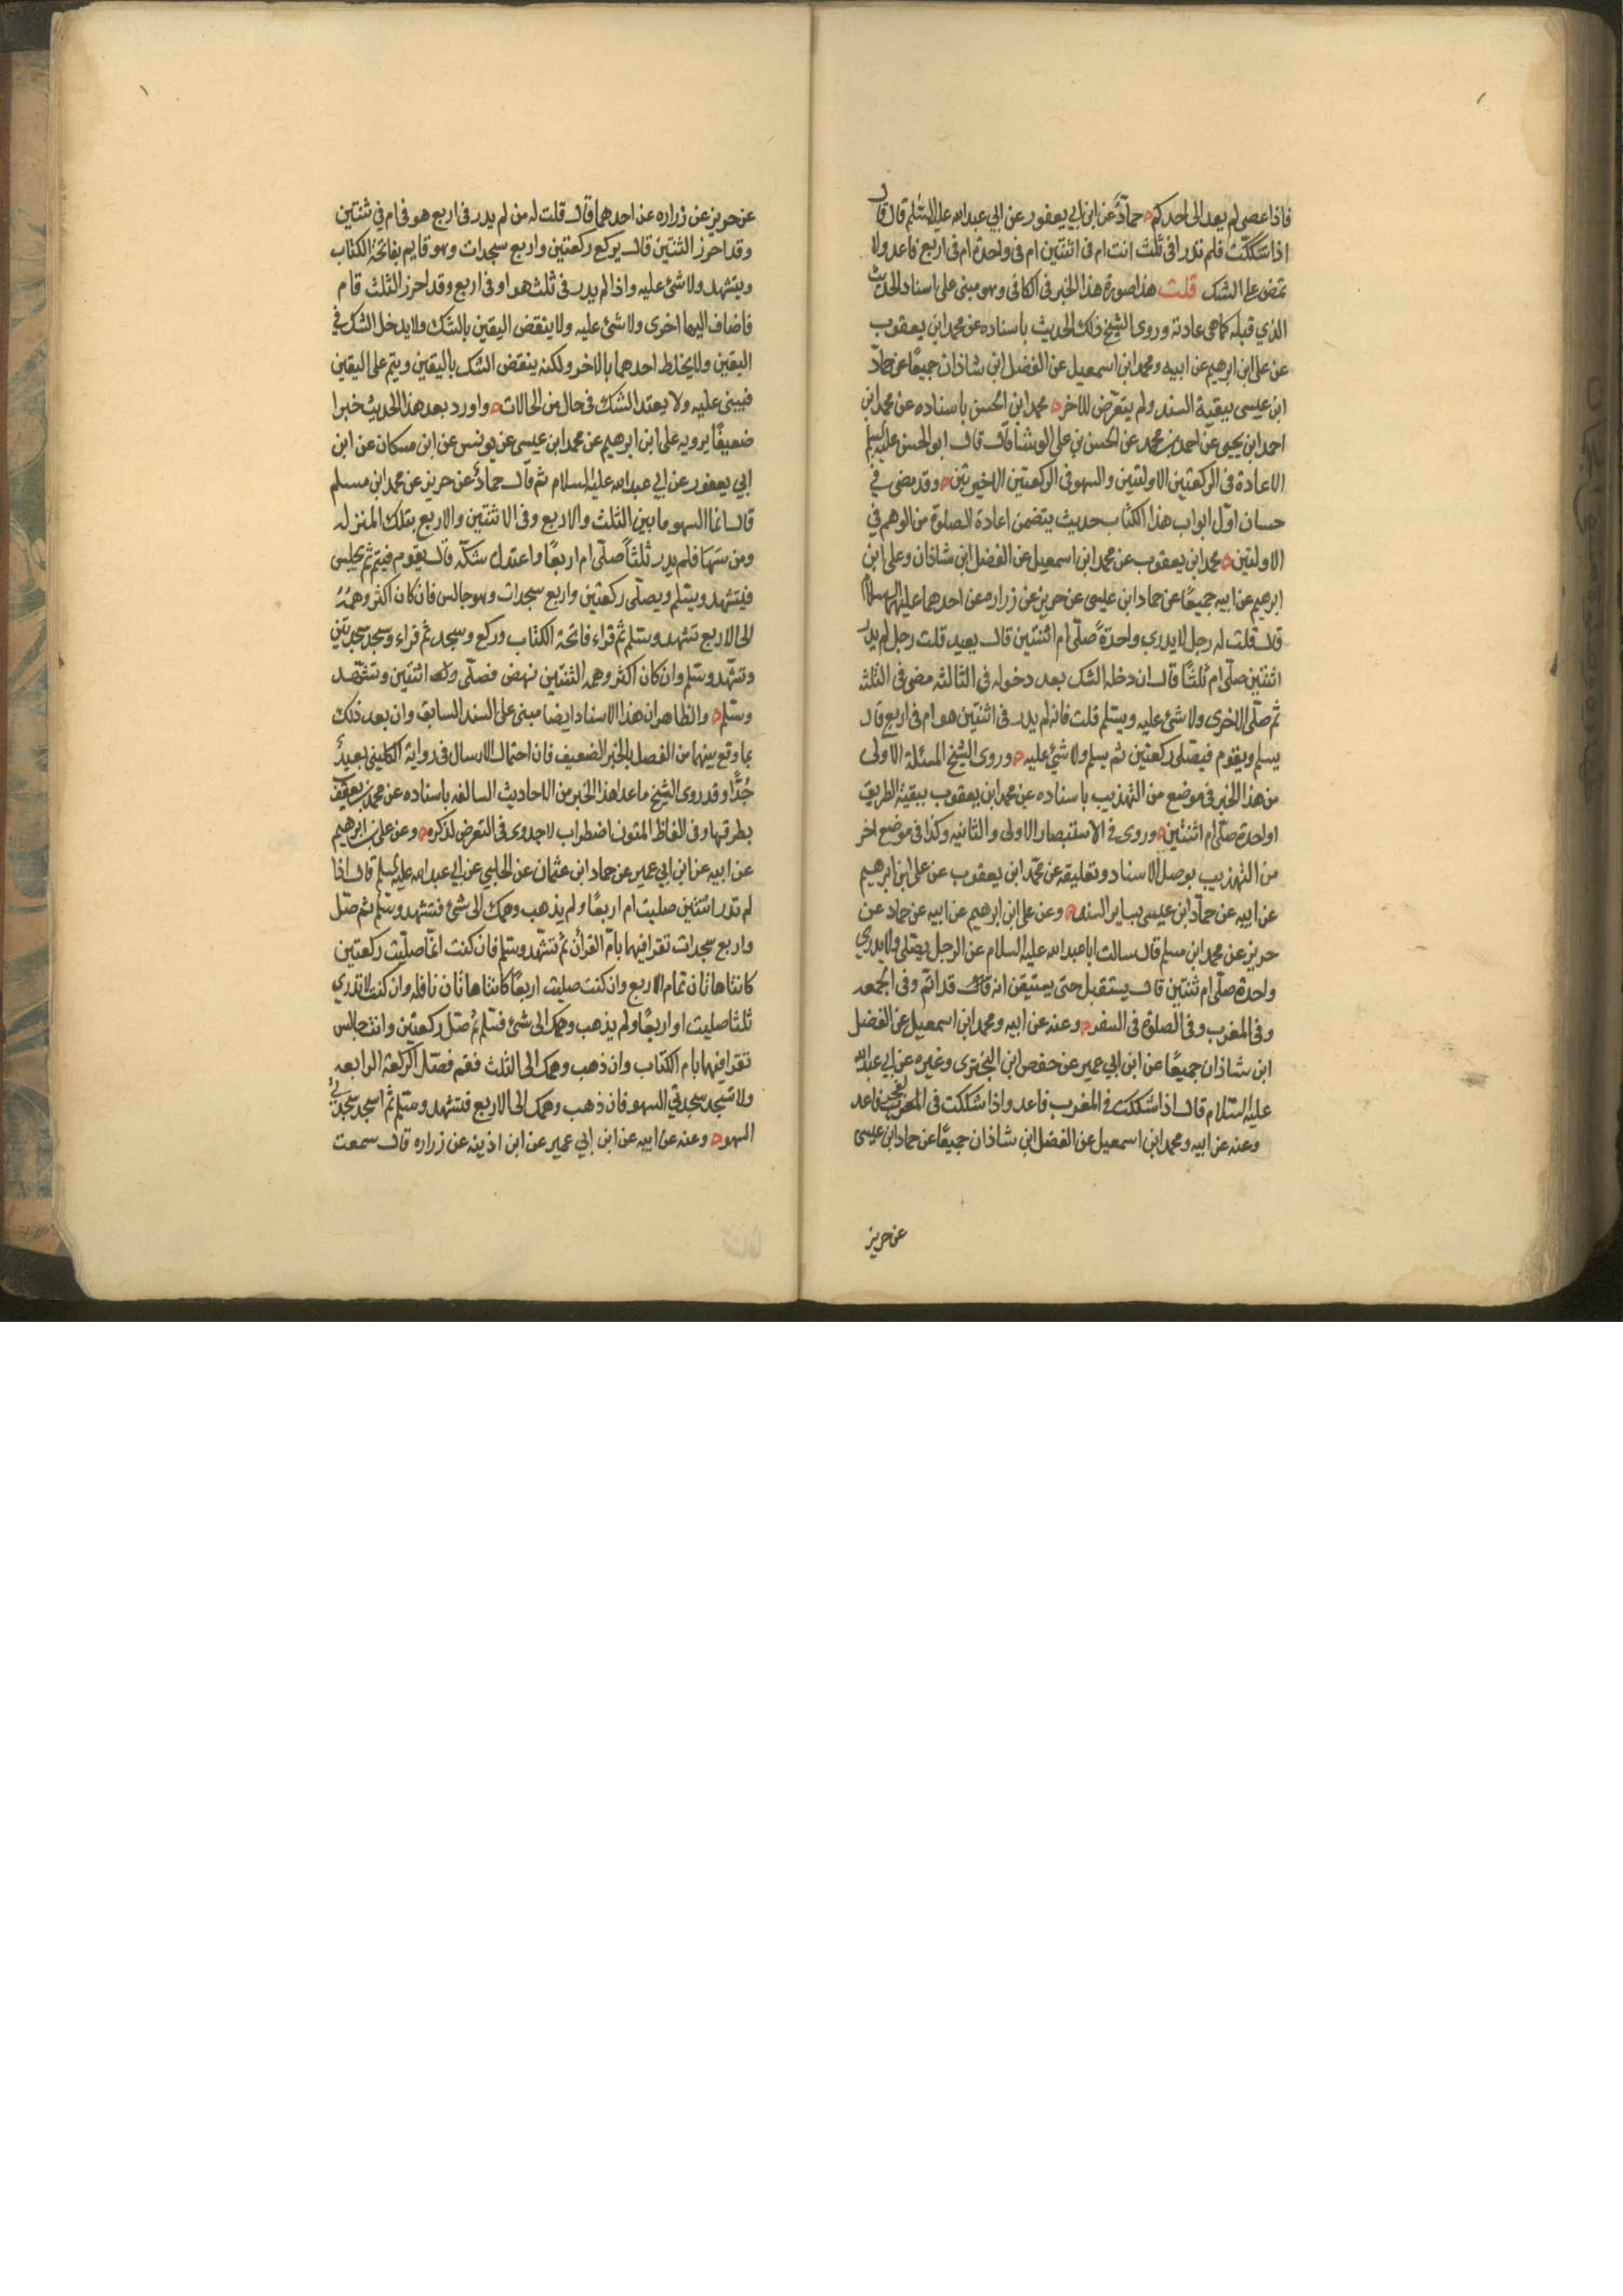 فاذا عصى لم يعد الى احدكم حماد عن ابن ابي يعفور عن ابي عبد الله عليه السلام قال قال
اذا شككت فلم تدر افى ثلث انت ام فى اثنتين ام فى واحدة ام فى اربع فاعد ولا
تمض على الشك قلت هذا صورة هذا الخبر فى الكافى وهو مبنى على اسناد الحديث
الذي قبله كما هى عادته وروى الشيخ ذلك الحديث باسناده عن محمد ابن يعقوب
عن على ابن ابرهيم عن ابيه ومحمد ابن اسمعيل عن الفضل ابن شاذان جميعًا عن حماد
ابن عيسى ببقية السند ولم يتعرض للاخر محمد ابن الحسن باسناده عن محمد ابن
احمد ابن يحيى عن احمد بن محمد عن الحسن بن على الوشا قال قال ابو الحسن عليه السلم
الاعادة فى الركعتين الاولتين والسهو فى الركعتين الاخيرتين وقد مضى في
حسان اول ابواب هذا الكتاب حديث يتضمن اعادة الصلوة من الوهم في
الاولتين محمد ابن يعقوب عن محمد ابن اسمعيل عن الفضل ابن شاذان وعلى ابن
ابرهيم عن ابيه جميعًا عن حماد ابن عيسى عن حريز عن زراره عن احدهما عليهما السلام
قال قلت له رجل لا يدرى واحدةً صلّى ام اثنتين قال يعيد قلت رجل لم يدر
اثنتين صلى ام ثلثًا قال ان دخله الشك بعد دخوله في الثالثه مضى فى الثلثه
ثم صلّى الاخرى ولا شئ عليه ويسلم قلت فانه لم يدر فى اثنتين هو ام فى اربع قال
يسلم ويقوم فيصلى ركعتين ثم يسلم ولا شئ عليه وروى الشيخ المسئلة الاولى
من هذا الخبر فى موضع من التهذيب باسناده عن محمد ابن يعقوب ببقية الطريق
او واحدة صلّى ام اثنتين وروى فى الاستبصار الاولى والثانيه وكذا فى موضع اخر
من التهذيب بوصل الاسناد وتعليقه عن محمد ابن يعقوب عن على ابن ابرهيم
عن ابيه عن حماد ابن عيسى بساير السند وعن على ابن ابرهيم عن ابيه عن حماد عن
حريز عن محمد ابن مسلم قال سالت ابا عبد الله عليه السلام عن الرجل يصلى ولا يدري
واحدة صلّى ام ثنتين قال يستقبل حتى يستيقن انه قد اتم وفى الجمعه
وفى المغرب وفى الصلوة فى السفر وعنه عن ابيه ومحمد ابن اسمعيل عن الفضل
ابن شاذان جميعًا عن ابن ابي عمير عن حفص ابن البخترى وغيره عن ابي عبد الله
عليه السلام قال اذا شككت فى المغرب فاعد واذا شككت فى الفجر فاعد
وعنه عن ابيه ومحمد ابن اسمعيل عن الفضل ابن شاذان جميعًا عن حماد ابن عيسى
عن حريز
عن حريز عن زراره عن احدهما قال قلت له من لم يدر فى اربع هو فى ام فى ثنتين
وقد احرز الثنتين قال يركع ركعتين واربع سجدات وهو قايم بفاتحة الكتاب
ويتشهد ولا شئ عليه واذا لم يدر فى ثلث هو او فى اربع وقد احرز الثلث قام
فاضاف اليها اخرى ولا شئ عليه ولا ينقض اليقين بالشك ولا يدخل الشك في
اليقين ولا يخلط احدهما بالاخر ولكنه ينقض الشك باليقين ويتم على اليقين
فيبنى عليه ولا يعتد الشك فى حال من الحالات واورد بعد هذا الحديث خبرا
ضعيفًا يرويه على ابن ابرهيم عن محمد ابن عيسى عن يونس عن ابن مسكان عن ابن
ابي يعفور عن ابي عبد الله عليه السلام ثم قال حماد عن حريز عن محمد ابن مسلم
قال انما السهو ما بين الثلث والاربع وفى الاثنتين والاربع بتلك المنزله
ومن سها فلم يدر ثلثًا صلّى ام اربعًا واعتدل شكه قال يقوم فيتم ثم يجلس
فيتشهد ويسلم ويصلّى ركعتين واربع سجدات وهو جالس فان كان اكثر وهمهُ
الى الاربع تشهد وسلم ثم قراء فاتحة الكتاب وركع وسجد ثم قراء وسجد سجدتين
وتشهد وسلم وان كان اكثر وهمه الثنتين نهض فصلّى اثنتين وتشهد
وسلم والظاهر ان هذا الاسناد ايضا مبنى على السند السابق وان بعد ذلك
بما وقع بينهما من الفصل بالخبر الضعيف فان احتمال الارسال فى رواية الكلينى بعيد
جدًّا وقد روى الشيخ ما عدا هذا الخبر من الاحاديث السالفه باسناده عن محمد بن يعقوب
بطرقها وفى الفاظ المتون اضطراب لا جدوى فى التعرض لذكره وعن على بن ابرهيم
عن ابيه عن ابن ابي عمير عن حماد ابن عثمان عن الحلبي عن ابي عبد الله عليه السلم قال اذا
لم تدر اثنتين صليت ام اربعًا ولم يذهب وهمك الى شئ فتشهد وسلم ثم صل
واربع سجدات تقرا فيهما بام القرآن ثم تشهد وسلم فان كنت انما صليت ركعتين
كانتا هاتان تمام الاربع وان كنت صليت اربعًا كانتا هاتان نافله وان كنت لا تدري
ثلثا صليت او اربعًا ولم يذهب وهمك الى شئ فسلم ثم صل ركعتين وانت جالس
تقرا فيهما بام الكتاب وان ذهب وهمك الى الثلث فقم فصل الركعة الرابعه
ولا تسجد سجدتي السهو فان ذهب وهمك الى الاربع فتشهد وسلم ثم اسجد سجدتي
السهو وعنه عن ابيه عن ابن ابي عمير عن ابن اذينه عن زراره قال سمعت